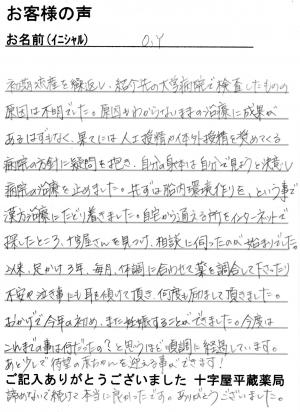 お客様の声
お名前(イニシャル) O.Y
初期流産を繰返し、紹介先の大学病院で検査したものの
原因は不明でした。原因もわからないままの治療に成果が
あるはずもなく、果てには人工授精や体外授精を奨めてくる
病院の方針に疑問を抱き、自分の身体は自分で見ようと決意し
病院の治療を止めました。まずは胎内環境作りを、という事で
漢方治療にたどり着きました。自宅から通える所をインターネットで
探したところ、十字屋さんを見つけ、相談に伺ったのが始まりでした。
以来、足かけ3年、毎月、体調に合わせて薬を調合して下さったり
不安や泣き事にも耳を傾けて頂き、何度も励まして頂きました。
おかげで今年の初め、また妊娠することができました。今度は
これまでの事は何だったの?と思うほど順調に経過しています。
あと少しで待望の赤ちゃんを迎える事ができます!
ご記入ありがとうございました 十字屋平蔵薬局
諦めないで続けて本当に良かったです。ありがとうございました。